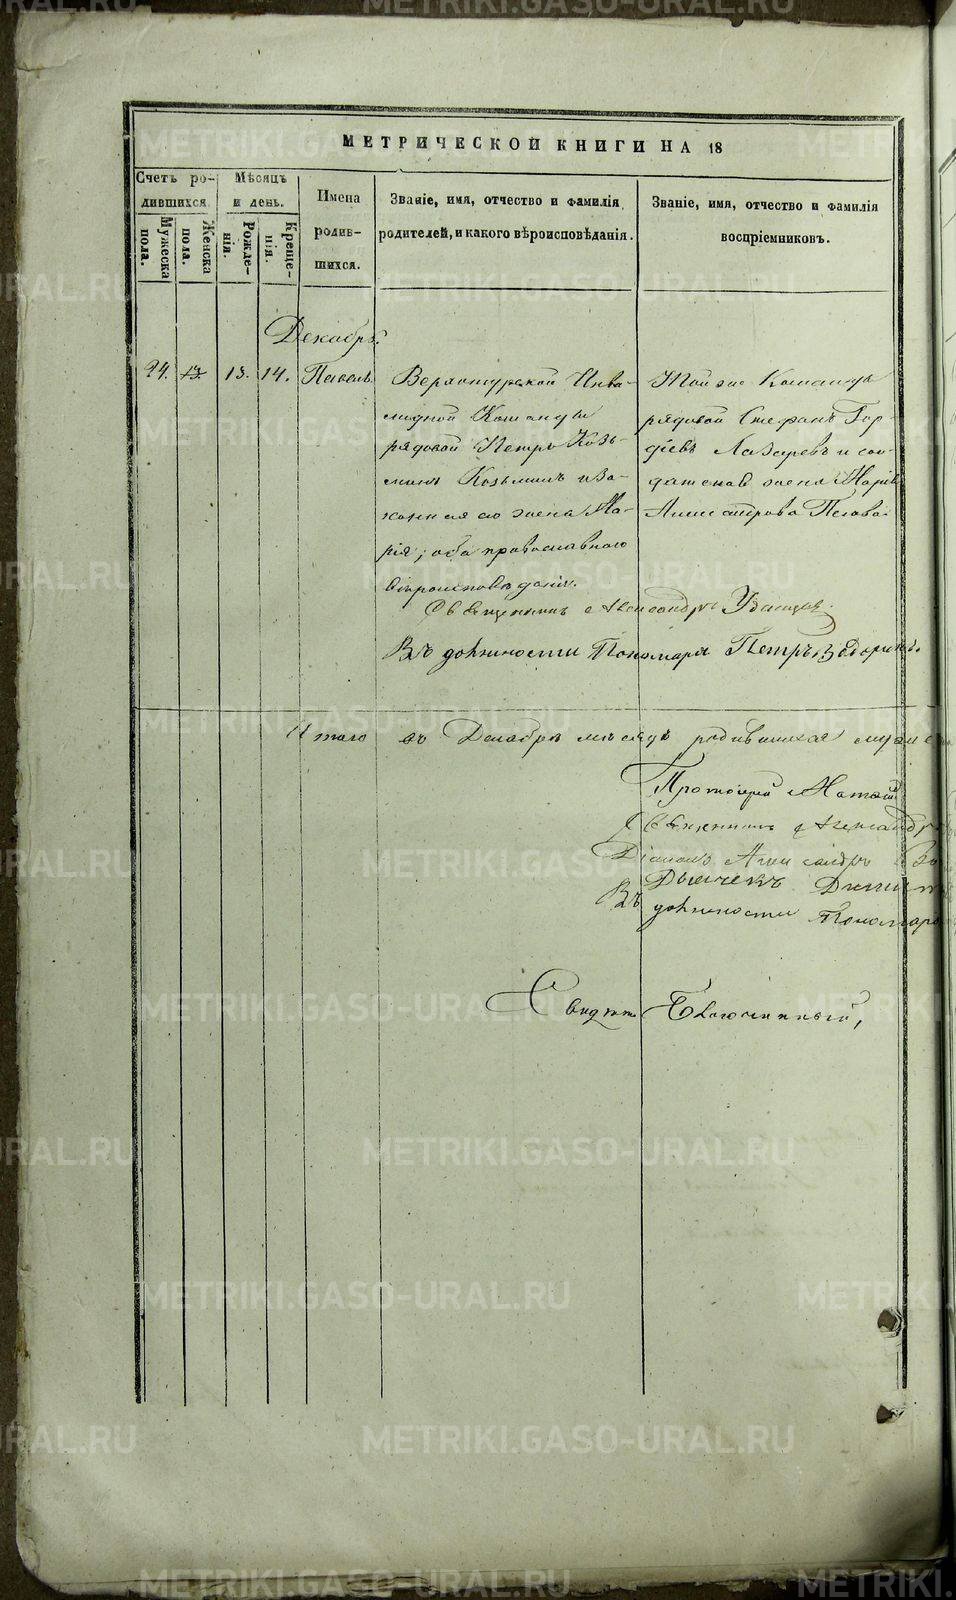 МЕТРИЧЕСКОЙ КНИГИ НА 18
Счетъ родившихся.
Мужеска пола.
Женска пола.
Мѣсяцъ и день.
Рожденія.
Крещенія.
Имена родившихся.
Званіе, имя, отчество и фамилія родителей, и какого вѣроисповѣданія.
Званіе, имя, отчество и фамилія воспріемниковъ.
Декабрь.
13. 14. Павелъ
Верхотурской Инва-
лидной Команды
рядовой Петръ Козь-
минъ Козьминъ и за-
конная его жена Ма-
рія; оба православнаго
вѣроисповѣданія.
Той же Команды
рядовой Стефанъ Гор-
дѣевъ Лазаревъ и сол-
датская жена Марія
Александрова
Священникъ Александръ Удинцев
Въ должности Пономаря Петръ
Итого въ Декабрѣ мѣсяцѣ родившихся муже
Протоіерей
Священникъ Александръ
Діаконъ Александръ
Дьячекъ Дими
Въ должности Пономаря
Свидѣт. Благочинный,
METRIKI.GASO-URAL.RU